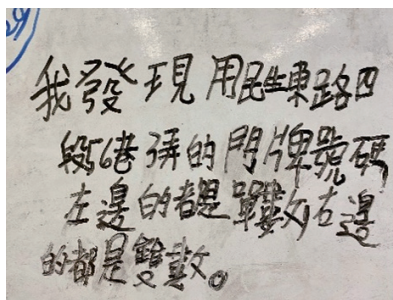 我發現用民生東路四
段56巷弄的門牌號碼
左邊的都是單數,右邊
的都是雙數。